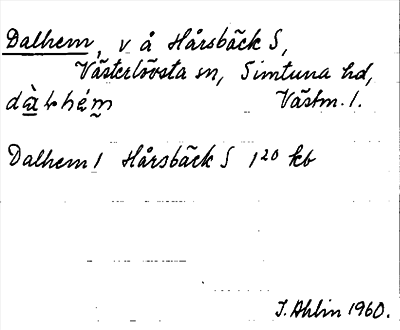 Dalhem, v å Hårsbäck S,
Västerlövsta sn, Simtuna hd,
dàlhém Västm. l.
Dalhem 1 Hårsbäck S 1²⁰ kb
J. Ahlin 1960.